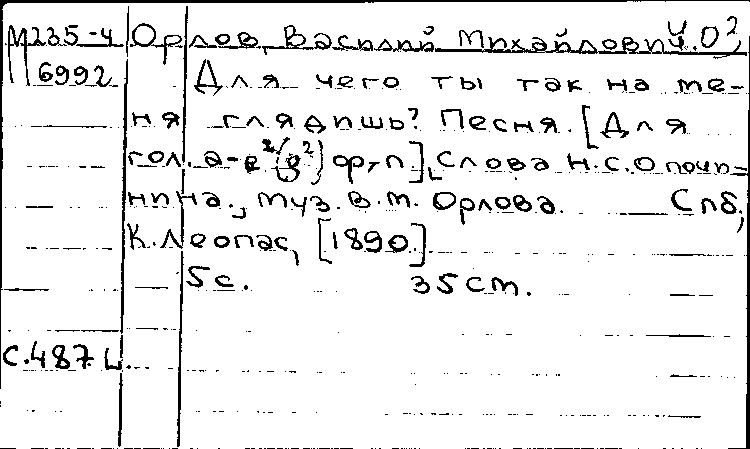 М235-4 Орлов, Василий Михайлович.
6992 Для чего ты так на ме-
ня глядишь? Песня. [Для
гол. а-е² (g²) фр,п.], Слова Н.С.Опочи=
нина., муз. В.М. Орлова. Спб,
К.Леопас, [1890.].
5с. 35см.
С.487 L.